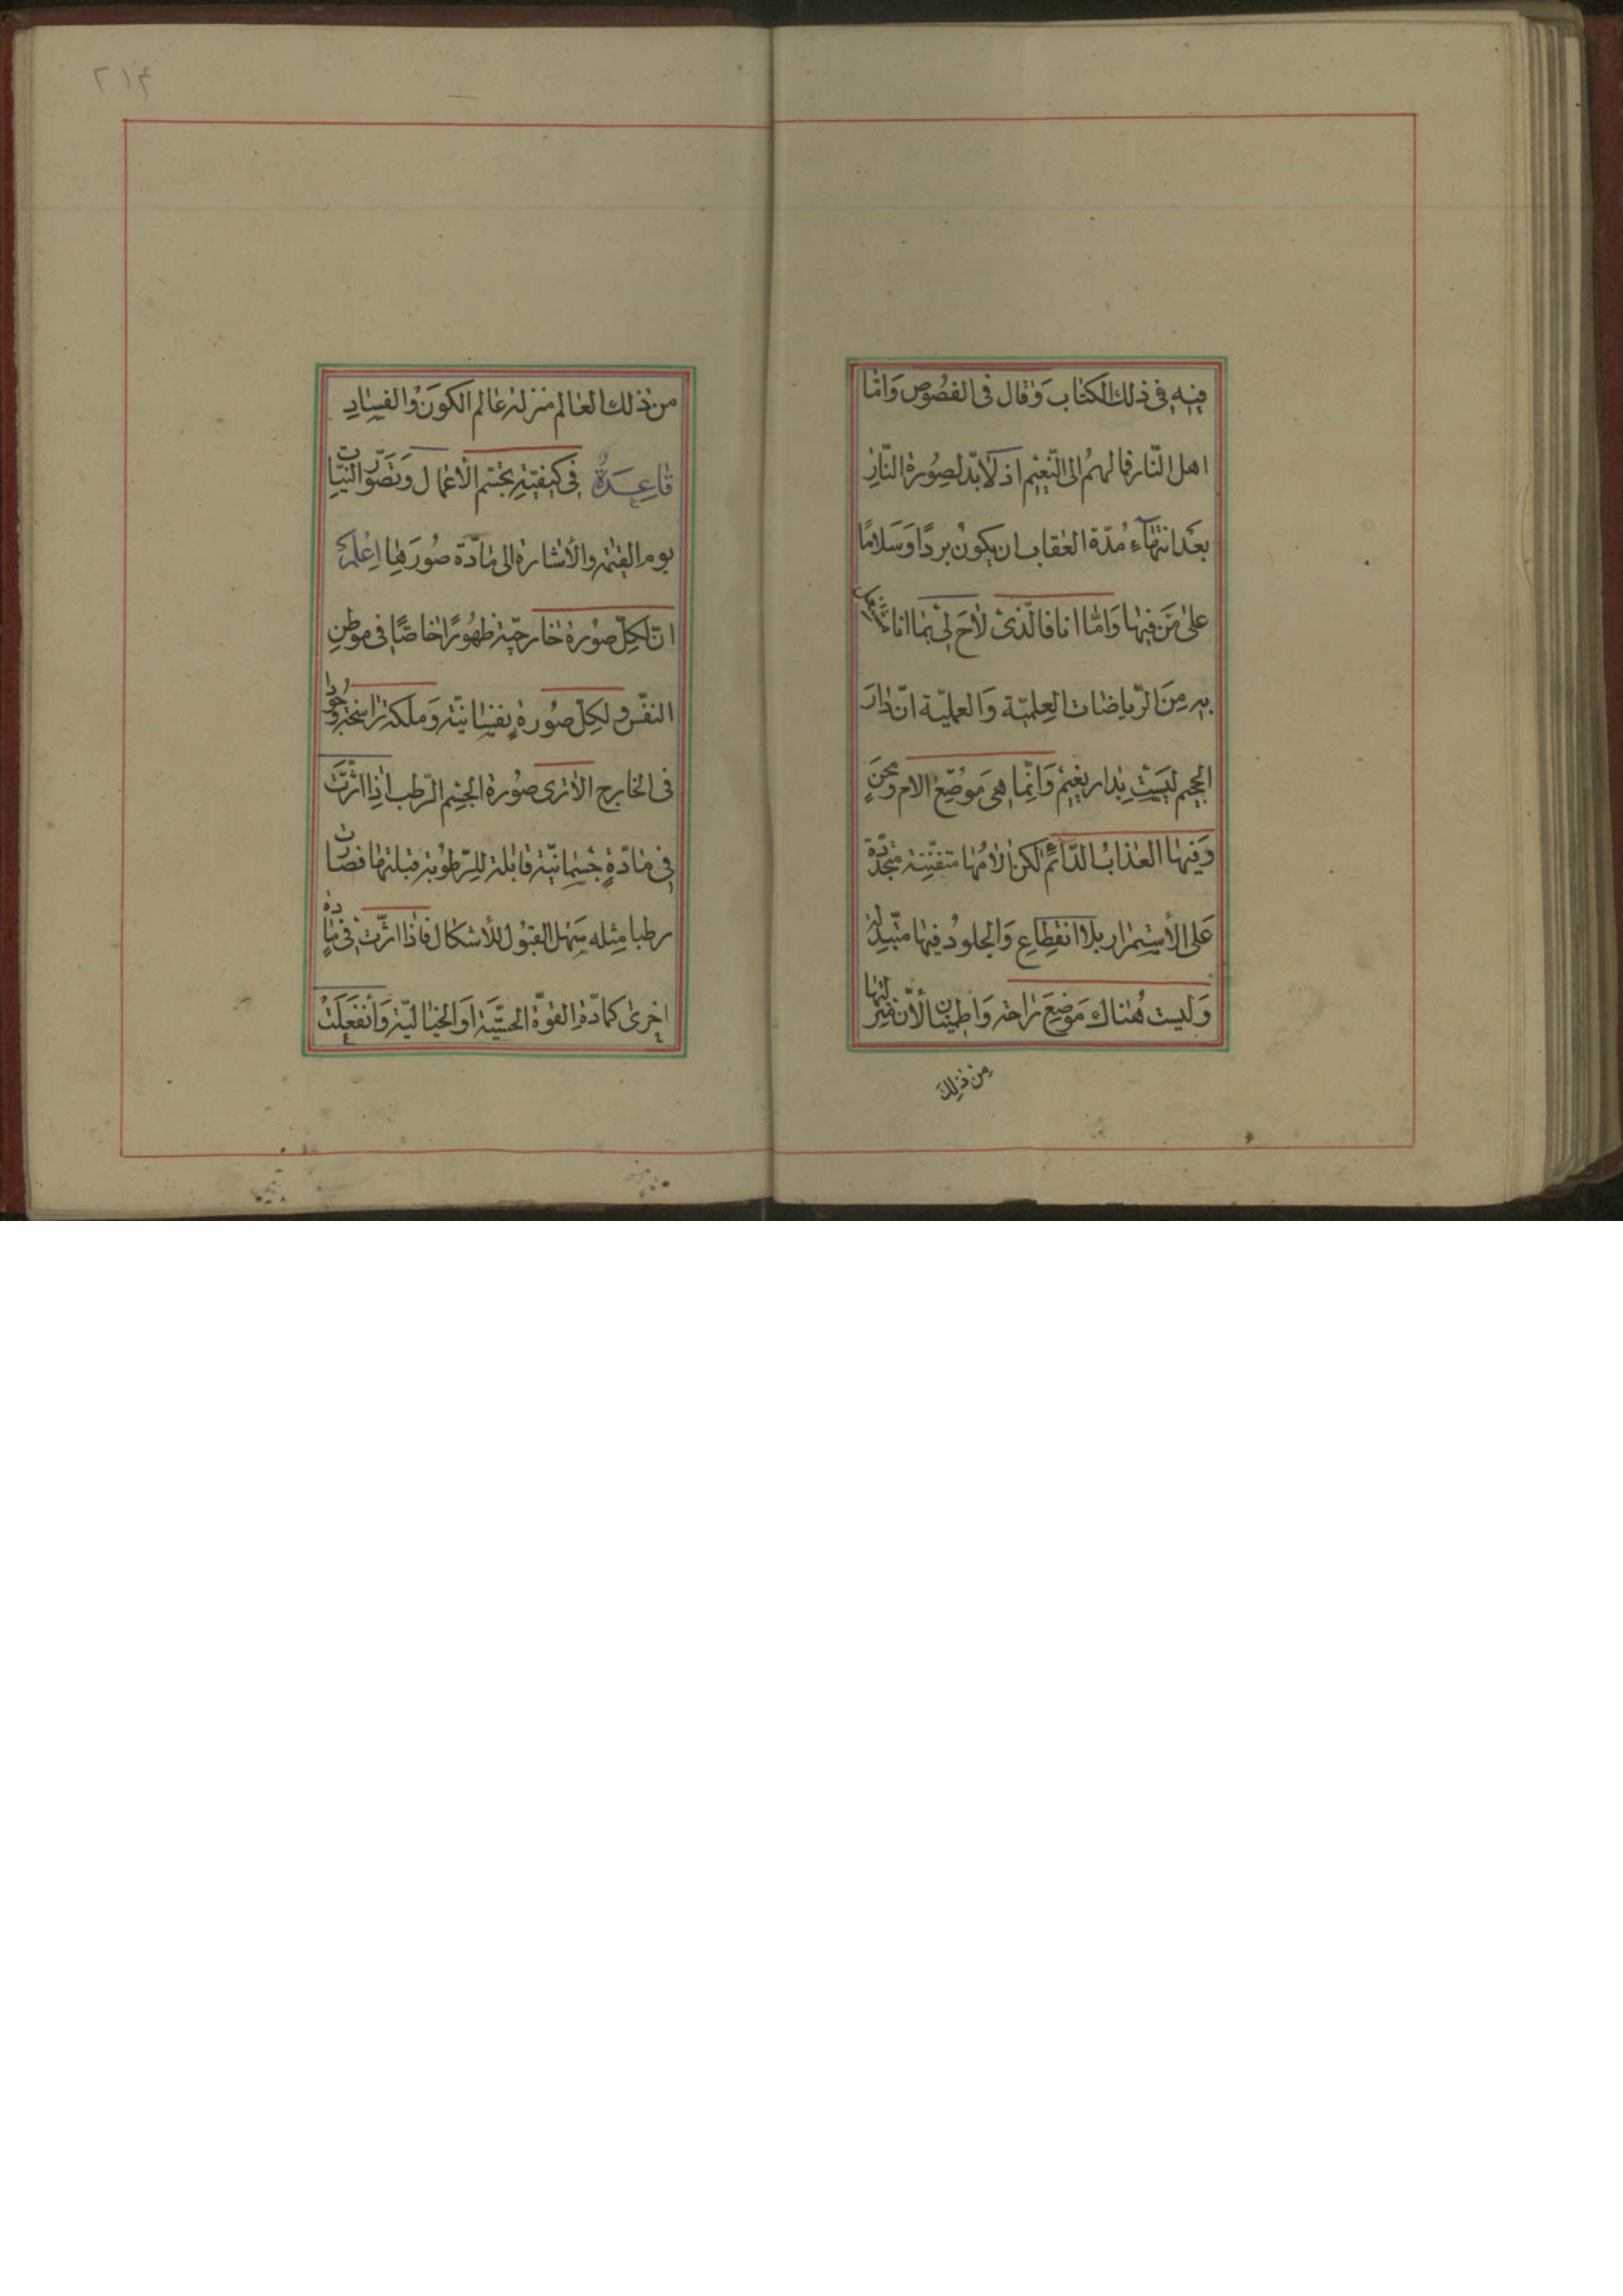 فيه في ذلك الكتاب وقال في الفصوص واما
اهل النّار فمالهم الى النّعيم اذ لابدّ لصورة النّار
بعد انتهاء مدّة العقاب ان يكون بردًا وسلامًا
على من فيها وامّا انا فالّذى لاح لى بما انا مشتغل
به من الرّياضات العلميّة والعمليّة انّ دار
الجحيم ليست بدار نعيم وانّما هى موضع الالام ومحن
وفيها العذاب الدّائم لكن الامها متفنّنة متجدّدة
على الأستمرار بلا انقطاع والجلود فيها متبدّلة
وليست هناك موضع راحة واطمينان لأنّ منزلتها
من ذلك
٢١۴
من ذلك العالم منزلة عالم الكون والفساد
قاعدة في كيفيّة تجسّم الأعمال وتصوّرت النيّات
يوم القيمة والأشارة الى مادّة صورها اعلم
انّ لكلّ صورة خارجيّة ظهورًا خاصًّا في موطن
النفس ولكلّ صورة نفسانيّة وملكة راسخة وجودا
في الخارج الا ترى صورة الجسم الرّطب اذا اثّرت
في مادّة جسمانيّة قابلة للرّطوبة قبلتها فصارت
رطبا مثله سهل القبول للأشكال فاذا اثّرت في مادة
اخرى كمادّة القوّة الحسّيّة او الخياليّة وأنفعلت